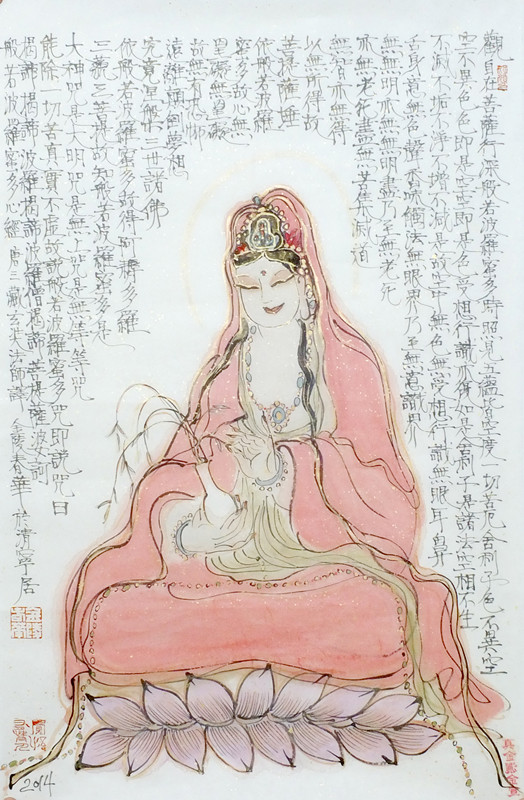 觀自在菩薩行深般若波羅蜜多時照見五蘊皆空度一切苦厄舍利子色不異空
空不異色色即是空空即是色受想行識亦復如是舍利子是諸法空相不生
不滅不垢不淨不增不減是故空中無色無受想行識無眼耳鼻
舌身意無色聲香味觸法無眼界乃至無意識界
無無明亦無無明盡乃至無老死
亦無老死盡無苦集滅道
無智亦無得
以無所得故
菩提薩埵
依般若波羅
蜜多故心無
罣礙無罣礙
故無有恐怖
遠離顛倒夢想
究竟涅槃三世諸佛
依般若波羅蜜多故得阿耨多羅
三藐三菩提故知般若波羅蜜多是
大神咒是大明咒是無上咒是無等等咒
能除一切苦真實不虛故說般若波羅蜜多咒即說咒曰
揭諦揭諦波羅揭諦波羅僧揭諦菩提薩婆訶
般若波羅蜜多心經 唐三藏玄奘法師譯 春華於清寧居
2014